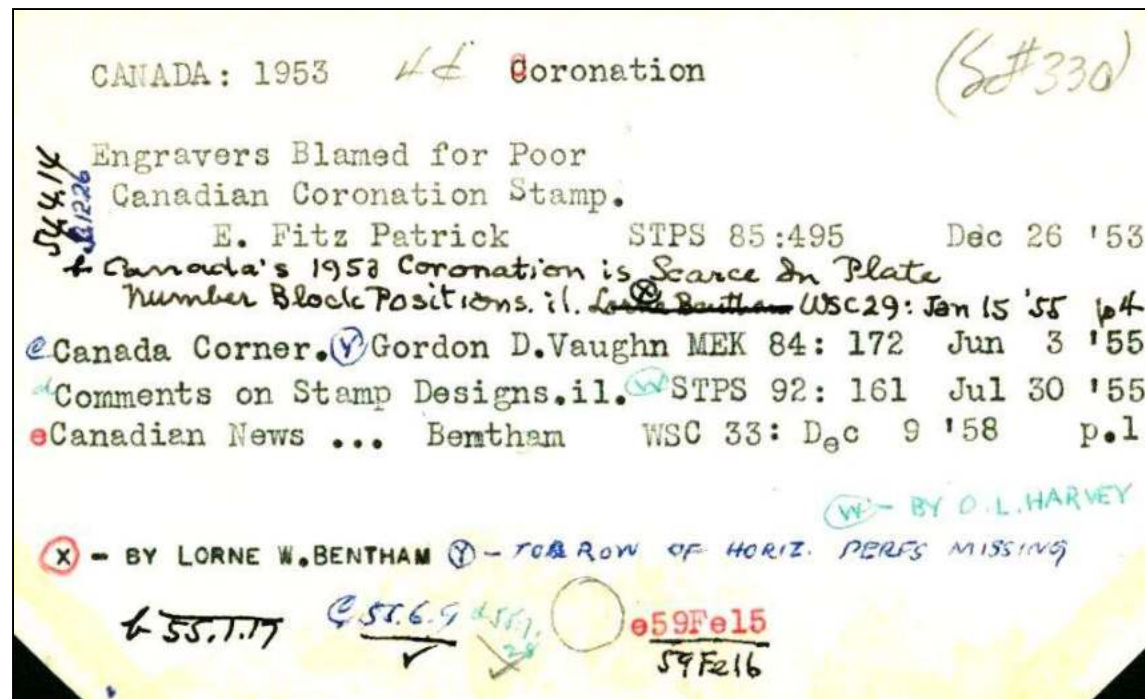 CANADA: 1953 4¢ Coronation (S#330)
Engravers Blamed for Poor
Canadian Coronation Stamp.
E. Fitz Patrick STPS 85:495 Dec 26 '53
54.4.14
b Canada's 1953 Coronation is Scarce In Plate
Number Block Positions. il. Ⓧ WSC29: Jan 15 '55 p4
c Canada Corner. Ⓨ Gordon D.Vaughn MEK 84: 172 Jun 3 '55
d Comments on Stamp Designs.il. Ⓦ STPS 92: 161 Jul 30 '55
e Canadian News ... Bemtham WSC 33: Dec 9 '58 p.1
Ⓦ - BY O.L.HARVEY
Ⓧ - BY LORNE W.BENTHAM Ⓨ - TOP ROW OF HORIZ. PERFS MISSING
b 55.1.17 C 55.6.9 e59Fe15
59Fe16